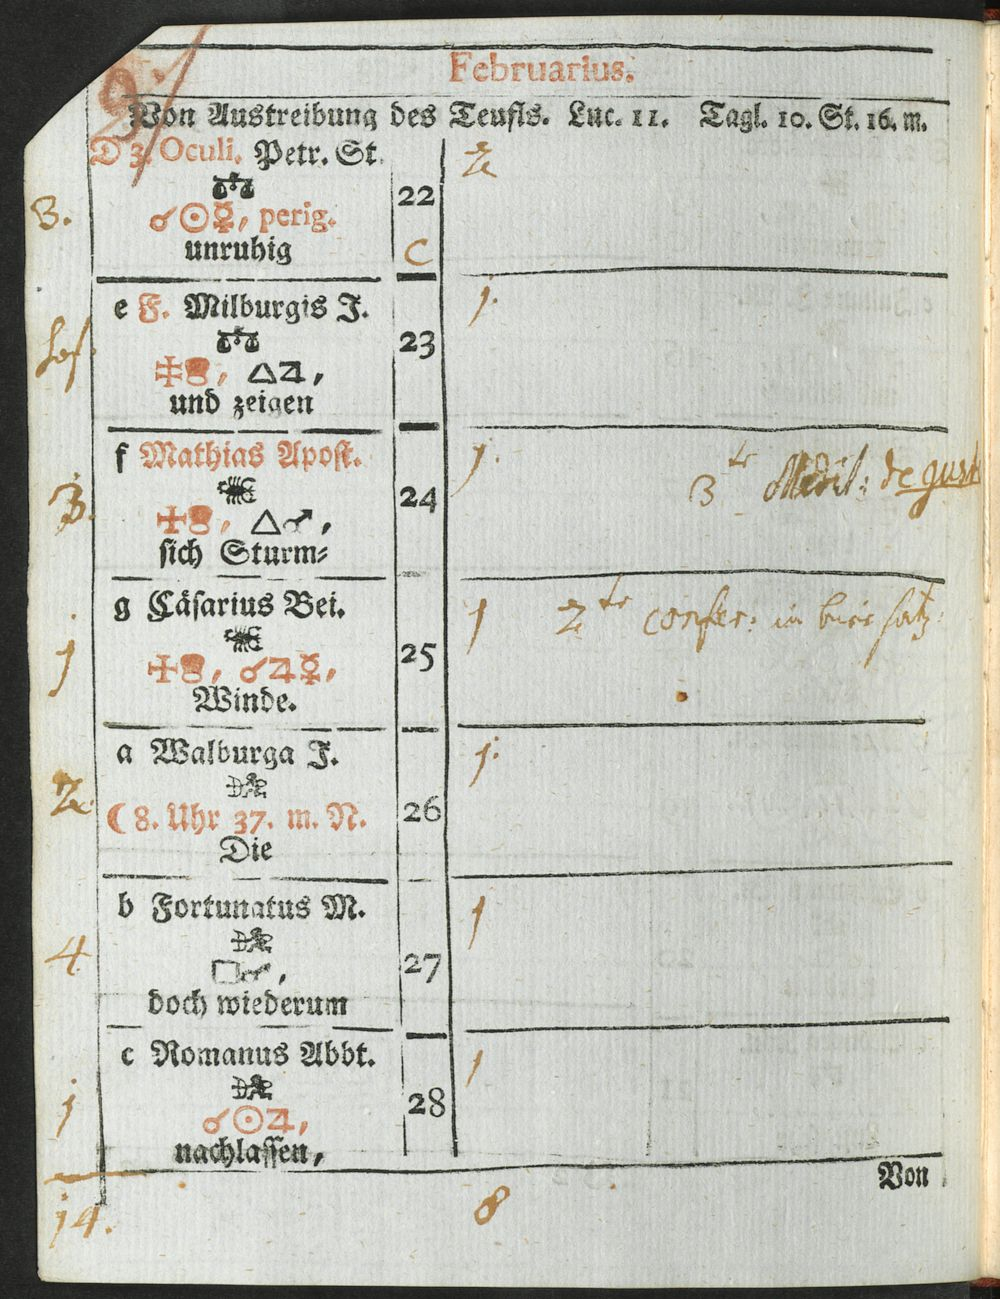 9.
Februarius.
Von Austreibung des Teufls. Luc. 11. Tagl. 10. St. 16. m.
D 3. Oculi. Petr. St.
♎
3. ☌☉☿, perig. 22 2
unruhig C
e F. Milburgis J. 1.
♎ 23
△♃,
und zeigen
f Mathias Apost. 1. 3 te Medit: de
♏ 24
3. △♂,
sich Sturm-
g Cäsarius Bei. 1 2 te confer: in
♏ 25
1 ☌♃☿,
Winde.
a Walburga J. 1.
♐
2. ☾ 8. Uhr 37. m. N. 26
Die
b Fortunatus M. 1
♐
4. □♂, 27
doch wiederum
c Romanus Abbt. 1
♐
1 ☌☉♃, 28
nachlassen,
Von
14. 8